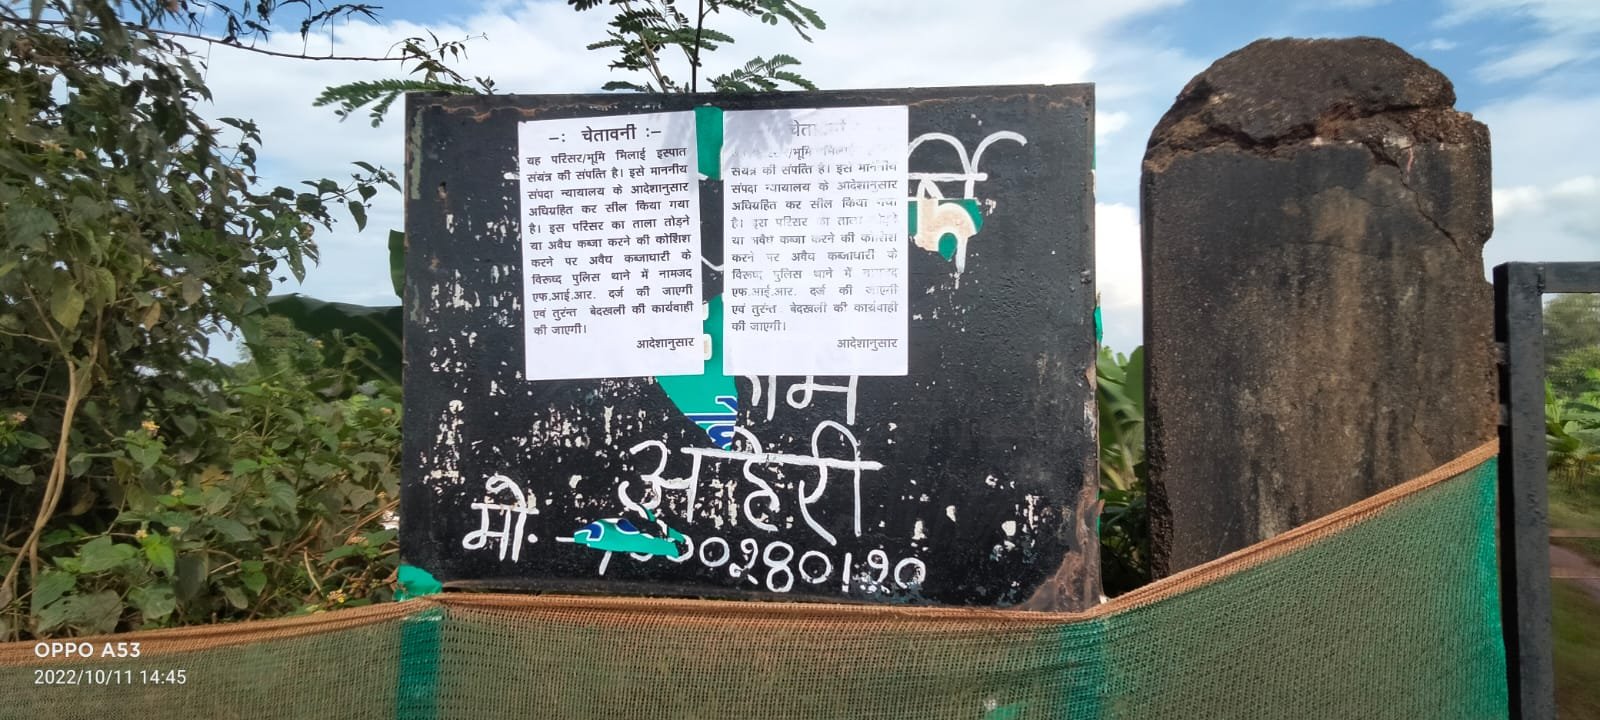 -: चेतावनी :-
यह परिसर/भूमि भिलाई इस्पात
संयंत्र की संपत्ति है। इसे माननीय
संपदा न्यायालय के आदेशानुसार
अधिग्रहित कर सील किया गया
है। इस परिसर का ताला तोड़ने
या अवैध कब्जा करने की कोशिश
करने पर अवैध कब्जाधारी के
विरूध्द पुलिस थाने में नामजद
एफ.आई.आर. दर्ज की जाएगी
एवं तुरंन्त बेदखली की कार्यवाही
की जाएगी।
आदेशानुसार
चेतावनी
/भूमि भिलाई
संयंत्र की संपत्ति है। इसे माननीय
संपदा न्यायालय के आदेशानुसार
अधिग्रहित कर सील किया गया
है। इस परिसर का ताला तोड़ने
या अवैध कब्जा करने की कोशिश
करने पर अवैध कब्जाधारी के
विरूध्द पुलिस थाने में नामजद
एफ.आई.आर. दर्ज की जाएगी
एवं तुरंन्त बेदखली की कार्यवाही
की जाएगी।
आदेशानुसार
अहेरी
मो.
OPPO A53
2022/10/11 14:45